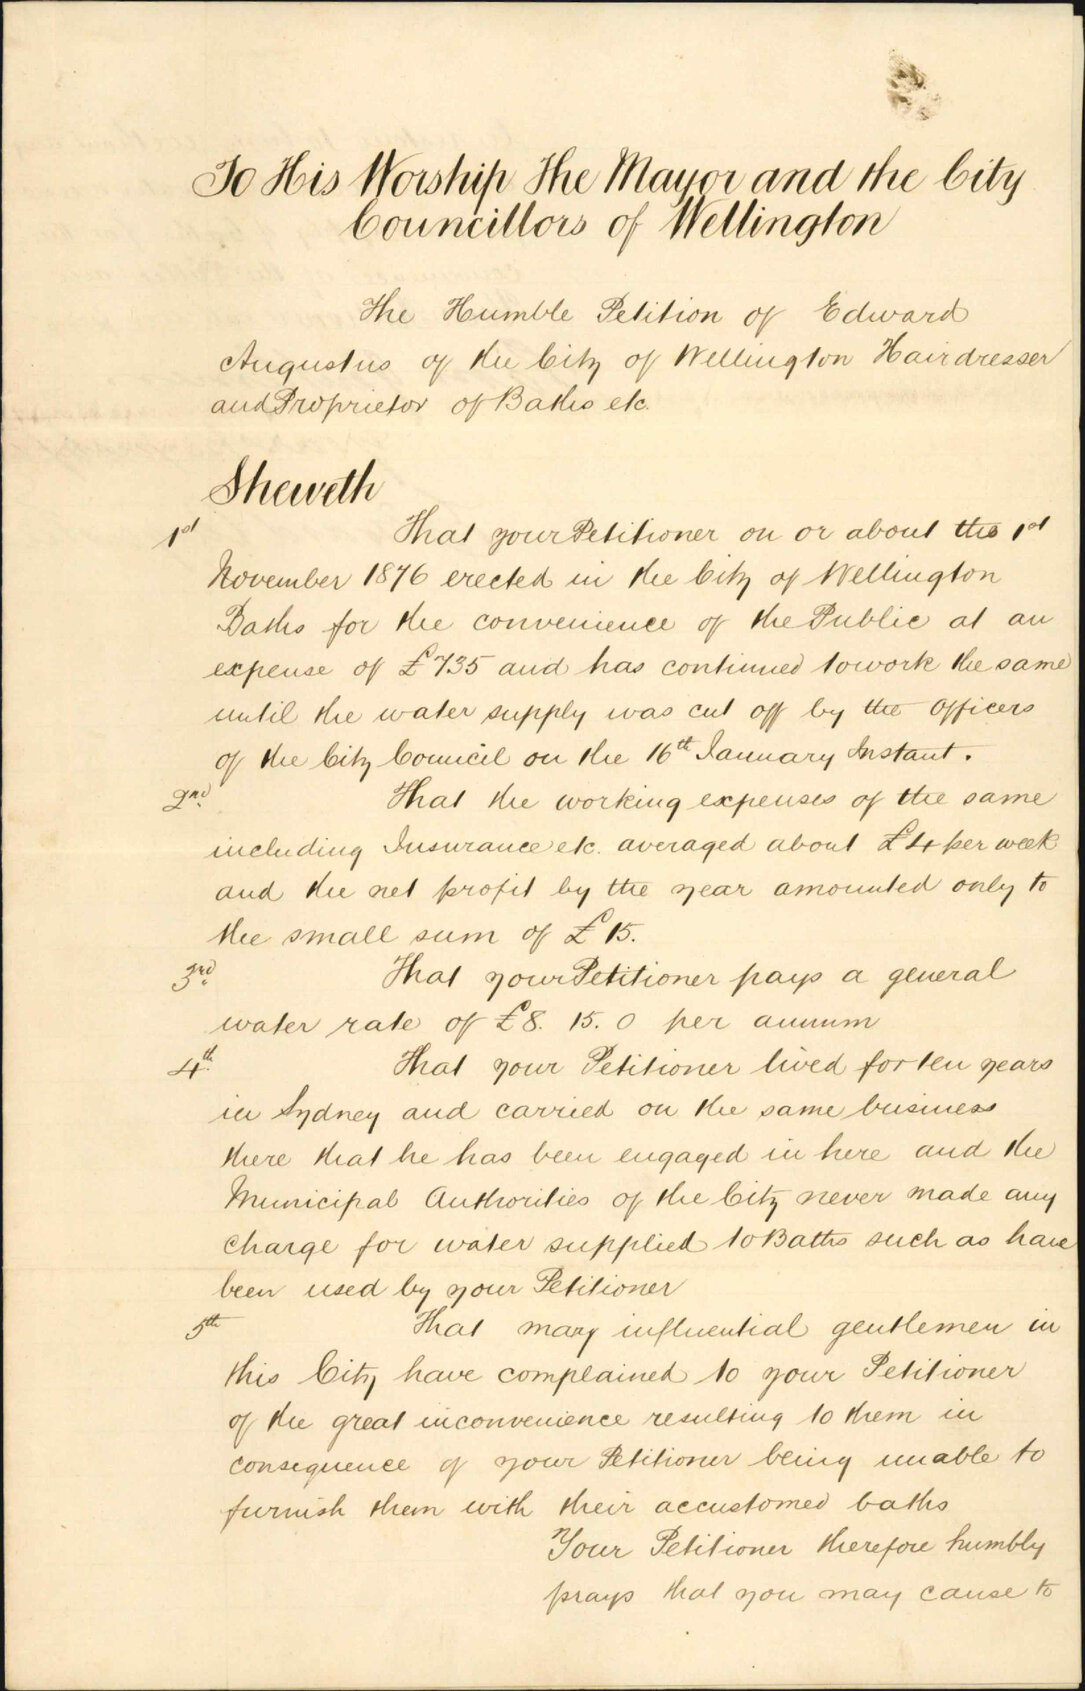 To His Worship The Mayor and the City
Councillors of Wellington
The Humble Petition of Edward
Augustus of the City of Wellington Hairdresser
and Proprietor of Baths etc.
Sheweth
1st That your Petitioner on or about the 1st
November 1876 erected in the City of Wellington
Baths for the convenience of the Public at an
expense of £735 and has continued to work the same
until the water supply was cut off by the Officers
of the City Council on the 16th January Instant.
2nd. That the working expenses of the same
including Insurance etc. averaged about £4 per week
and the net profit by the year amounted only to
the small sum of £15.
3rd. That your Petitioner pays a general
water rate of £8. 15. 0 per annum
4th. That your Petitioner lived for ten years
in Sydney and carried on the same business
there that he has been engaged in here and the
Municipal Authorities of the City never made any
charge for water supplied to Baths such as have
been used by your Petitioner
5th That many influential gentlemen in
this City have complained to your Petitioner
of the great inconvenience resulting to them in
consequence of your Petitioner being unable to
furnish them with their accustomed baths
Your Petitioner therefore humbly
prays that you may cause to